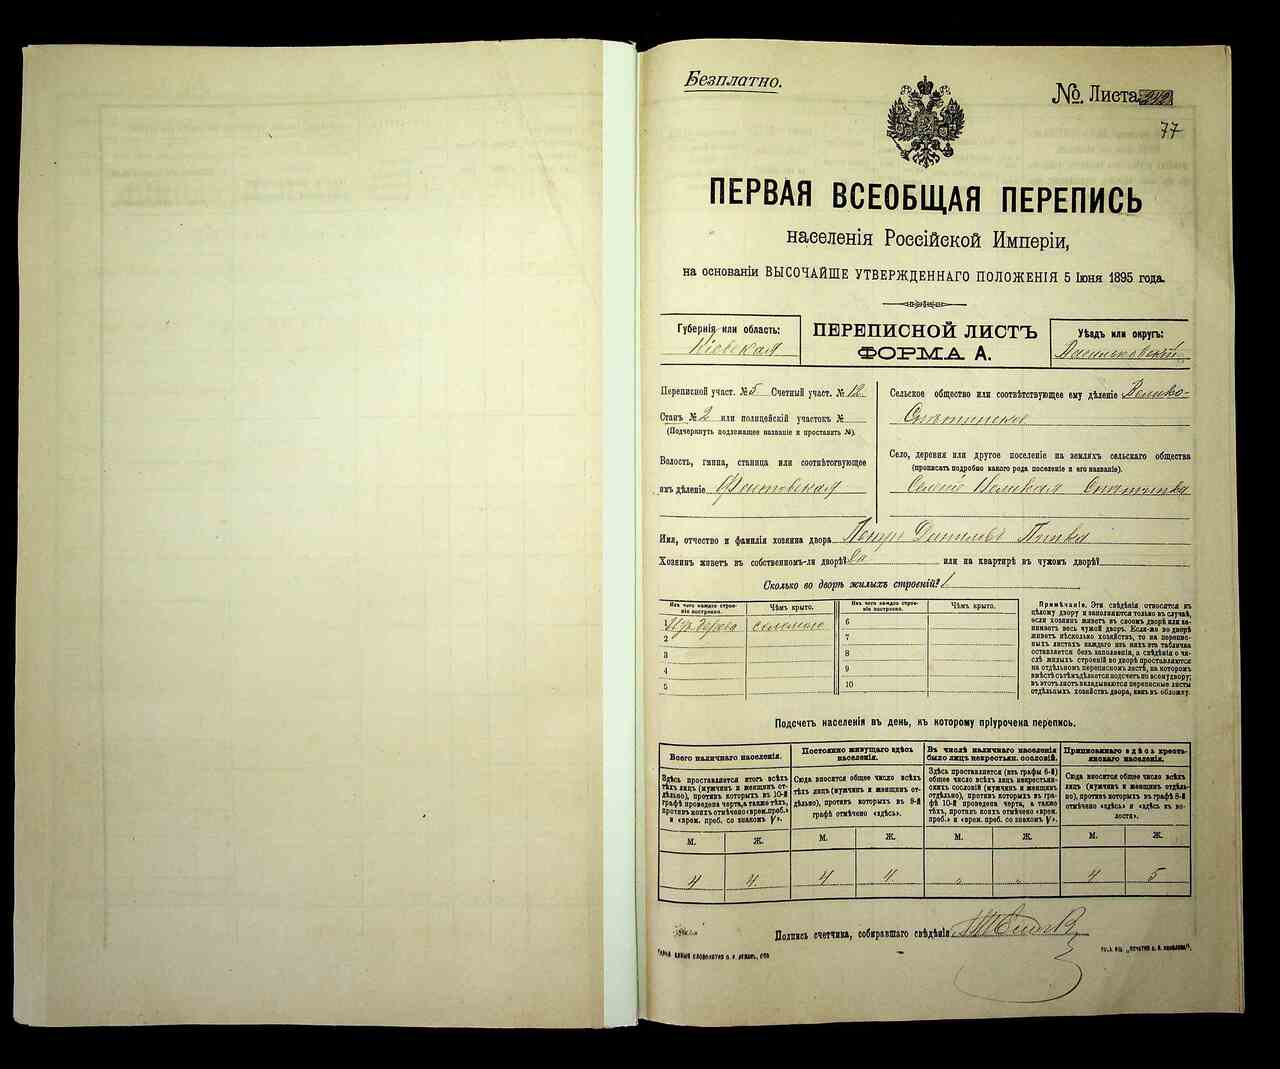 Безплатно.
№ Листа
77
ПЕРВАЯ ВСЕОБЩАЯ ПЕРЕПИСЬ
населенія Россійской Имперіи,
на основаніи ВЫСОЧАЙШЕ УТВЕРЖДЕННАГО ПОЛОЖЕНІЯ 5 Іюня 1895 года.
Губернія или область:
Кіевская
ПЕРЕПИСНОЙ ЛИСТЪ
ФОРМА А.
Уѣздъ или округъ:
Васильковскій
Переписной участ. № 5 Счетный участ. № 12
Станъ № 2 или полицейскій участокъ №
(Подчеркнуть подлежащее названіе и проставить №).
Волость, гмина, станица или соотвѣтствующее
имъ дѣленіе
Сельское общество или соотвѣтствующее ему дѣленіе Велико-
Село, деревня или другое поселеніе на земляхъ сельскаго общества
(прописать подробно какого рода поселеніе и его названіе).
Имя, отчество и фамилія хозяина двора Петръ
Хозяинъ живетъ въ собственномъ-ли дворѣ? Да или на квартирѣ въ чужомъ дворѣ?
Сколько во дворѣ жилыхъ строеній? 1
Изъ чего каждое строеніе построено.
Чѣмъ крыто.
Изъ чего каждое строеніе построено.
Чѣмъ крыто.
дерева соломою
2
3
4
5
6
7
8
9
10
Примѣчаніе. Эти свѣдѣнія относятся къ
цѣлому двору и заполняются только въ случаѣ,
если хозяинъ живетъ въ своемъ дворѣ или за-
нимаетъ весь чужой дворъ. Если-же во дворѣ
живетъ нѣсколько хозяйствъ, то на перепис-
ныхъ листахъ каждаго изъ нихъ эта табличка
оставляется безъ заполненія, а свѣдѣнія о чи-
слѣ жилыхъ строеній во дворѣ проставляются
на отдѣльномъ переписномъ листѣ, на которомъ
вмѣстѣ съ тѣмъ дѣлается подсчетъ по всему двору;
въ этотъ листъ вкладываются переписные листы
отдѣльныхъ хозяйствъ двора, какъ въ обложку.
Подсчетъ населенія въ день, къ которому пріурочена перепись.
Всего наличнаго населенія.
Здѣсь проставляется итогъ всѣхъ
тѣхъ лицъ (мужчинъ и женщинъ от-
дѣльно), противъ которыхъ въ 10-й
графѣ проведена черта, а также тѣхъ,
противъ коихъ отмѣчено «врем. преб.»
и «врем. преб. со знакомъ V».
Постоянно живущаго здѣсь
населенія.
Сюда вносится общее число всѣхъ
тѣхъ лицъ (мужчинъ и женщинъ от-
дѣльно), противъ которыхъ въ 9-й
графѣ отмѣчено «здѣсь».
Въ числѣ наличнаго населенія
было лицъ некрестьян. сословій.
Здѣсь проставляется (изъ графы 6-й)
общее число всѣхъ лицъ некрестьян-
скихъ сословій (мужчинъ и женщинъ
отдѣльно), противъ которыхъ въ гра-
фѣ 10-й проведена черта, а также
тѣхъ, противъ коихъ отмѣчено «врем.
преб.» и «врем. преб. со знакомъ V».
Приписаннаго здѣсь кресть-
янскаго населенія.
Сюда вносится общее число всѣхъ
лицъ (мужчинъ и женщинъ отдѣль-
но), противъ которыхъ въ графѣ 8-й
отмѣчено «здѣсь» и «здѣсь въ во-
лости».
М. Ж. М. Ж. М. Ж. М. Ж.
4 4 4 4 " " 4 5
Подпись счетчика, собиравшаго свѣдѣнія